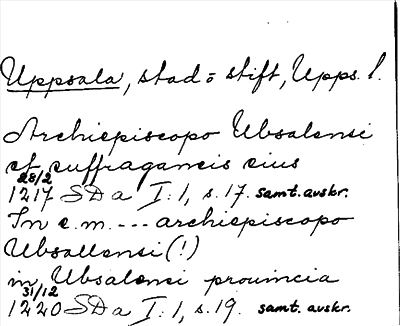 Uppsala, stad o stift, Upps. l.
Archiepiscopo Ubsalensi
et suffraganeis eius
28/2
1217 SD a I:1, s. 17. samt. avskr.
In e.m. --- archiepiscopo
Ubsallensi (!)
in Ubsalensi prouincia
31/12
1220 SD a I:1, s. 19. samt. avskr.